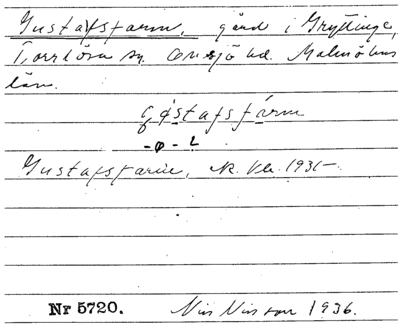 Gustafsfarm, gård i Gryttinge,
Torrlösa sn. Onsjö hd. Malmöhus
län.
gøstafsfarm
-ø-
Gustafsfarm, 1935
Nr 5720. Nils Nilsson 1936.